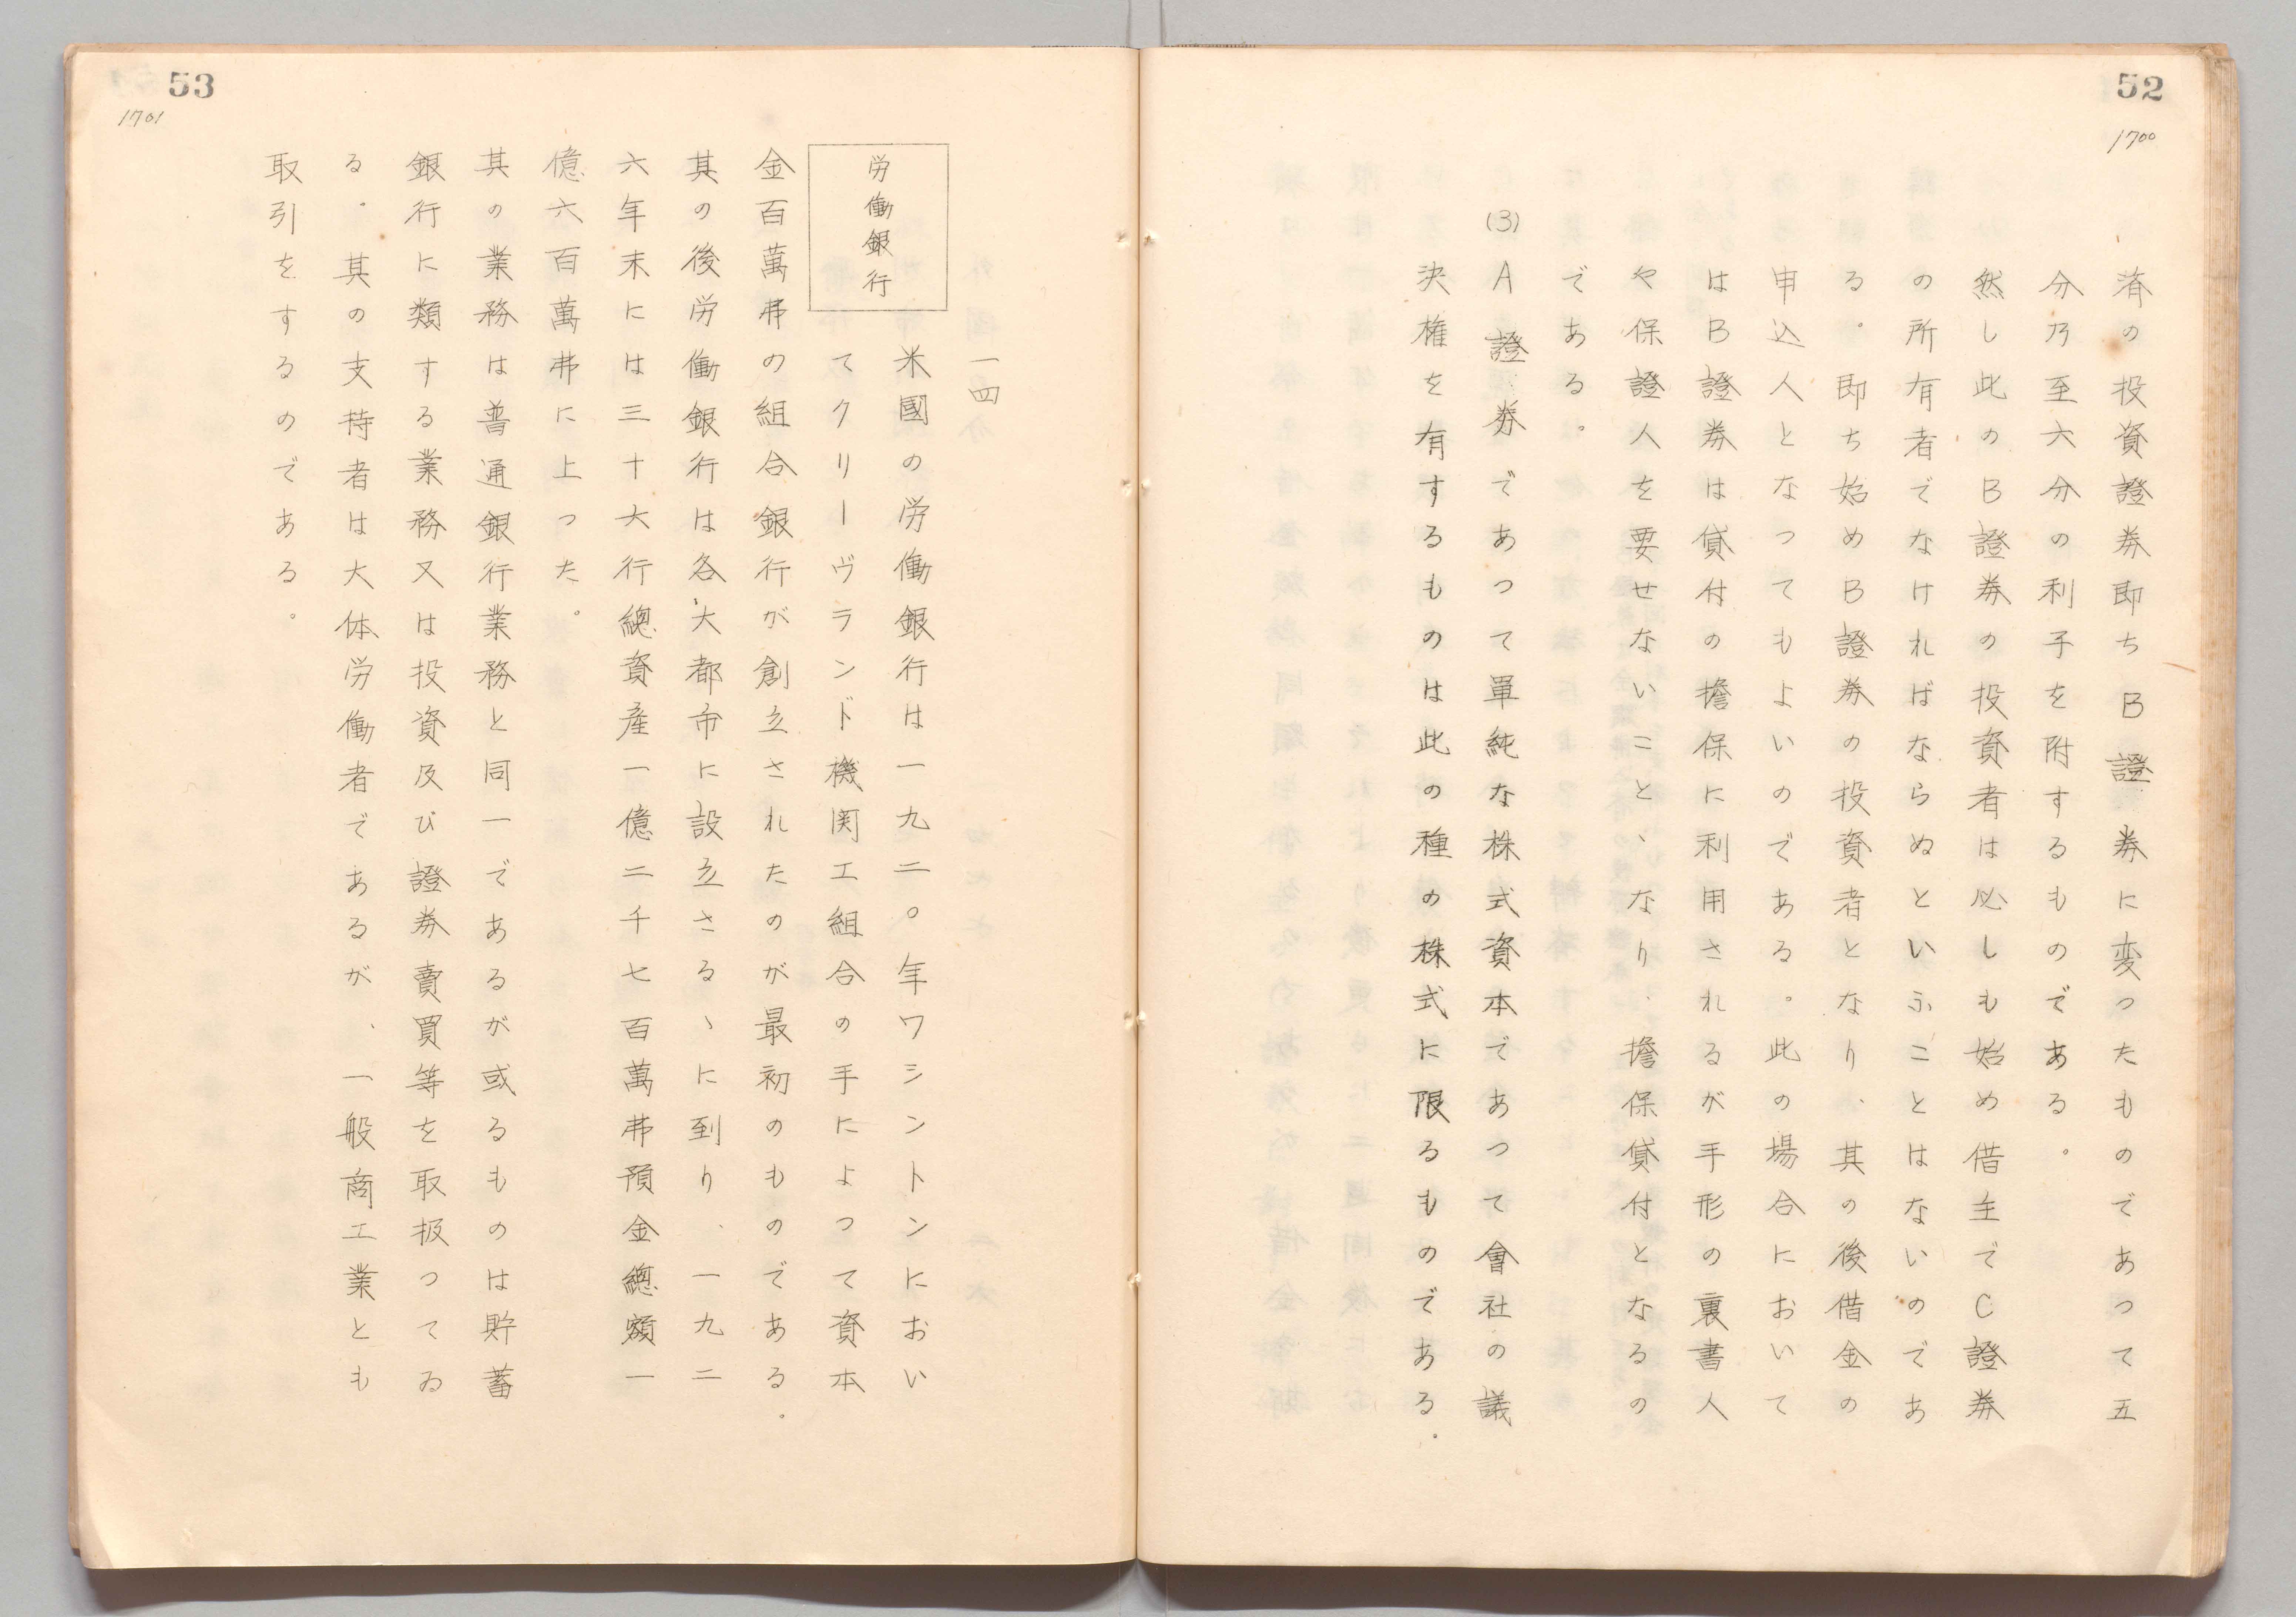 52
1700
済の投資證券即ちB證券に変つたものであつて五
分乃至六分の利子を附するものである。
然し此のB證券の投資者は必しも始め借主でC證券
の所有者でなければならぬといふことはないのであ
る。即ち始めB證券の投資者となり、其の後借金の
申込人となつてもよいのである。此の場合において
はB證券は貸付の擔保に利用されるが手形の裏書人
や保證人を要せないこと、なり、擔保貸付となるの
である。
(3)A證券であつて單純な株式資本であつて會社の議
決權を有するものは此の種の株式に限るものである.
53
1701
一四
労働銀行
米國の労働銀行は一九二〇年ワシントンにおい
てクリーヴランド機関工組合の手によつて資本
金百萬弗の組合銀行が創立されたのが最初のものである.
其の後労働銀行は各大都市に設立さるゝに到り、一九二
六年末には三十六行總資産一億二千七百萬弗預金總額一
億六百萬弗に上つた。
其の業務は普通銀行業務と同一であるが或るものは貯蓄
銀行に類する業務又は投資及び證券賣買等を取扱つてゐ
る.其の支持者は大体労働者であるが、一般商工業とも
取引をするのである。